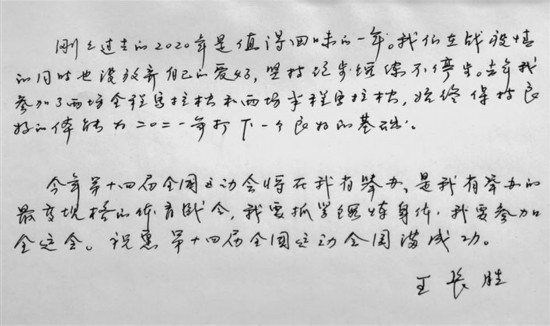 刚刚过去的2020年是值得回味的一年。我们在战疫情
的同时也没放弃自己的爱好，坚持跑步锻炼不停步。去年我
参加了两场全程马拉松和两场半程马拉松，始终保持良
好的体能为二〇二一年打下一个良好的基础。
今年第十四届全国运动会将在我省举办，是我省举办的
最高规格的体育盛会，我要抓紧锻炼身体，我要参加
全运会。祝愿第十四届全国运动会圆满成功。
王长胜